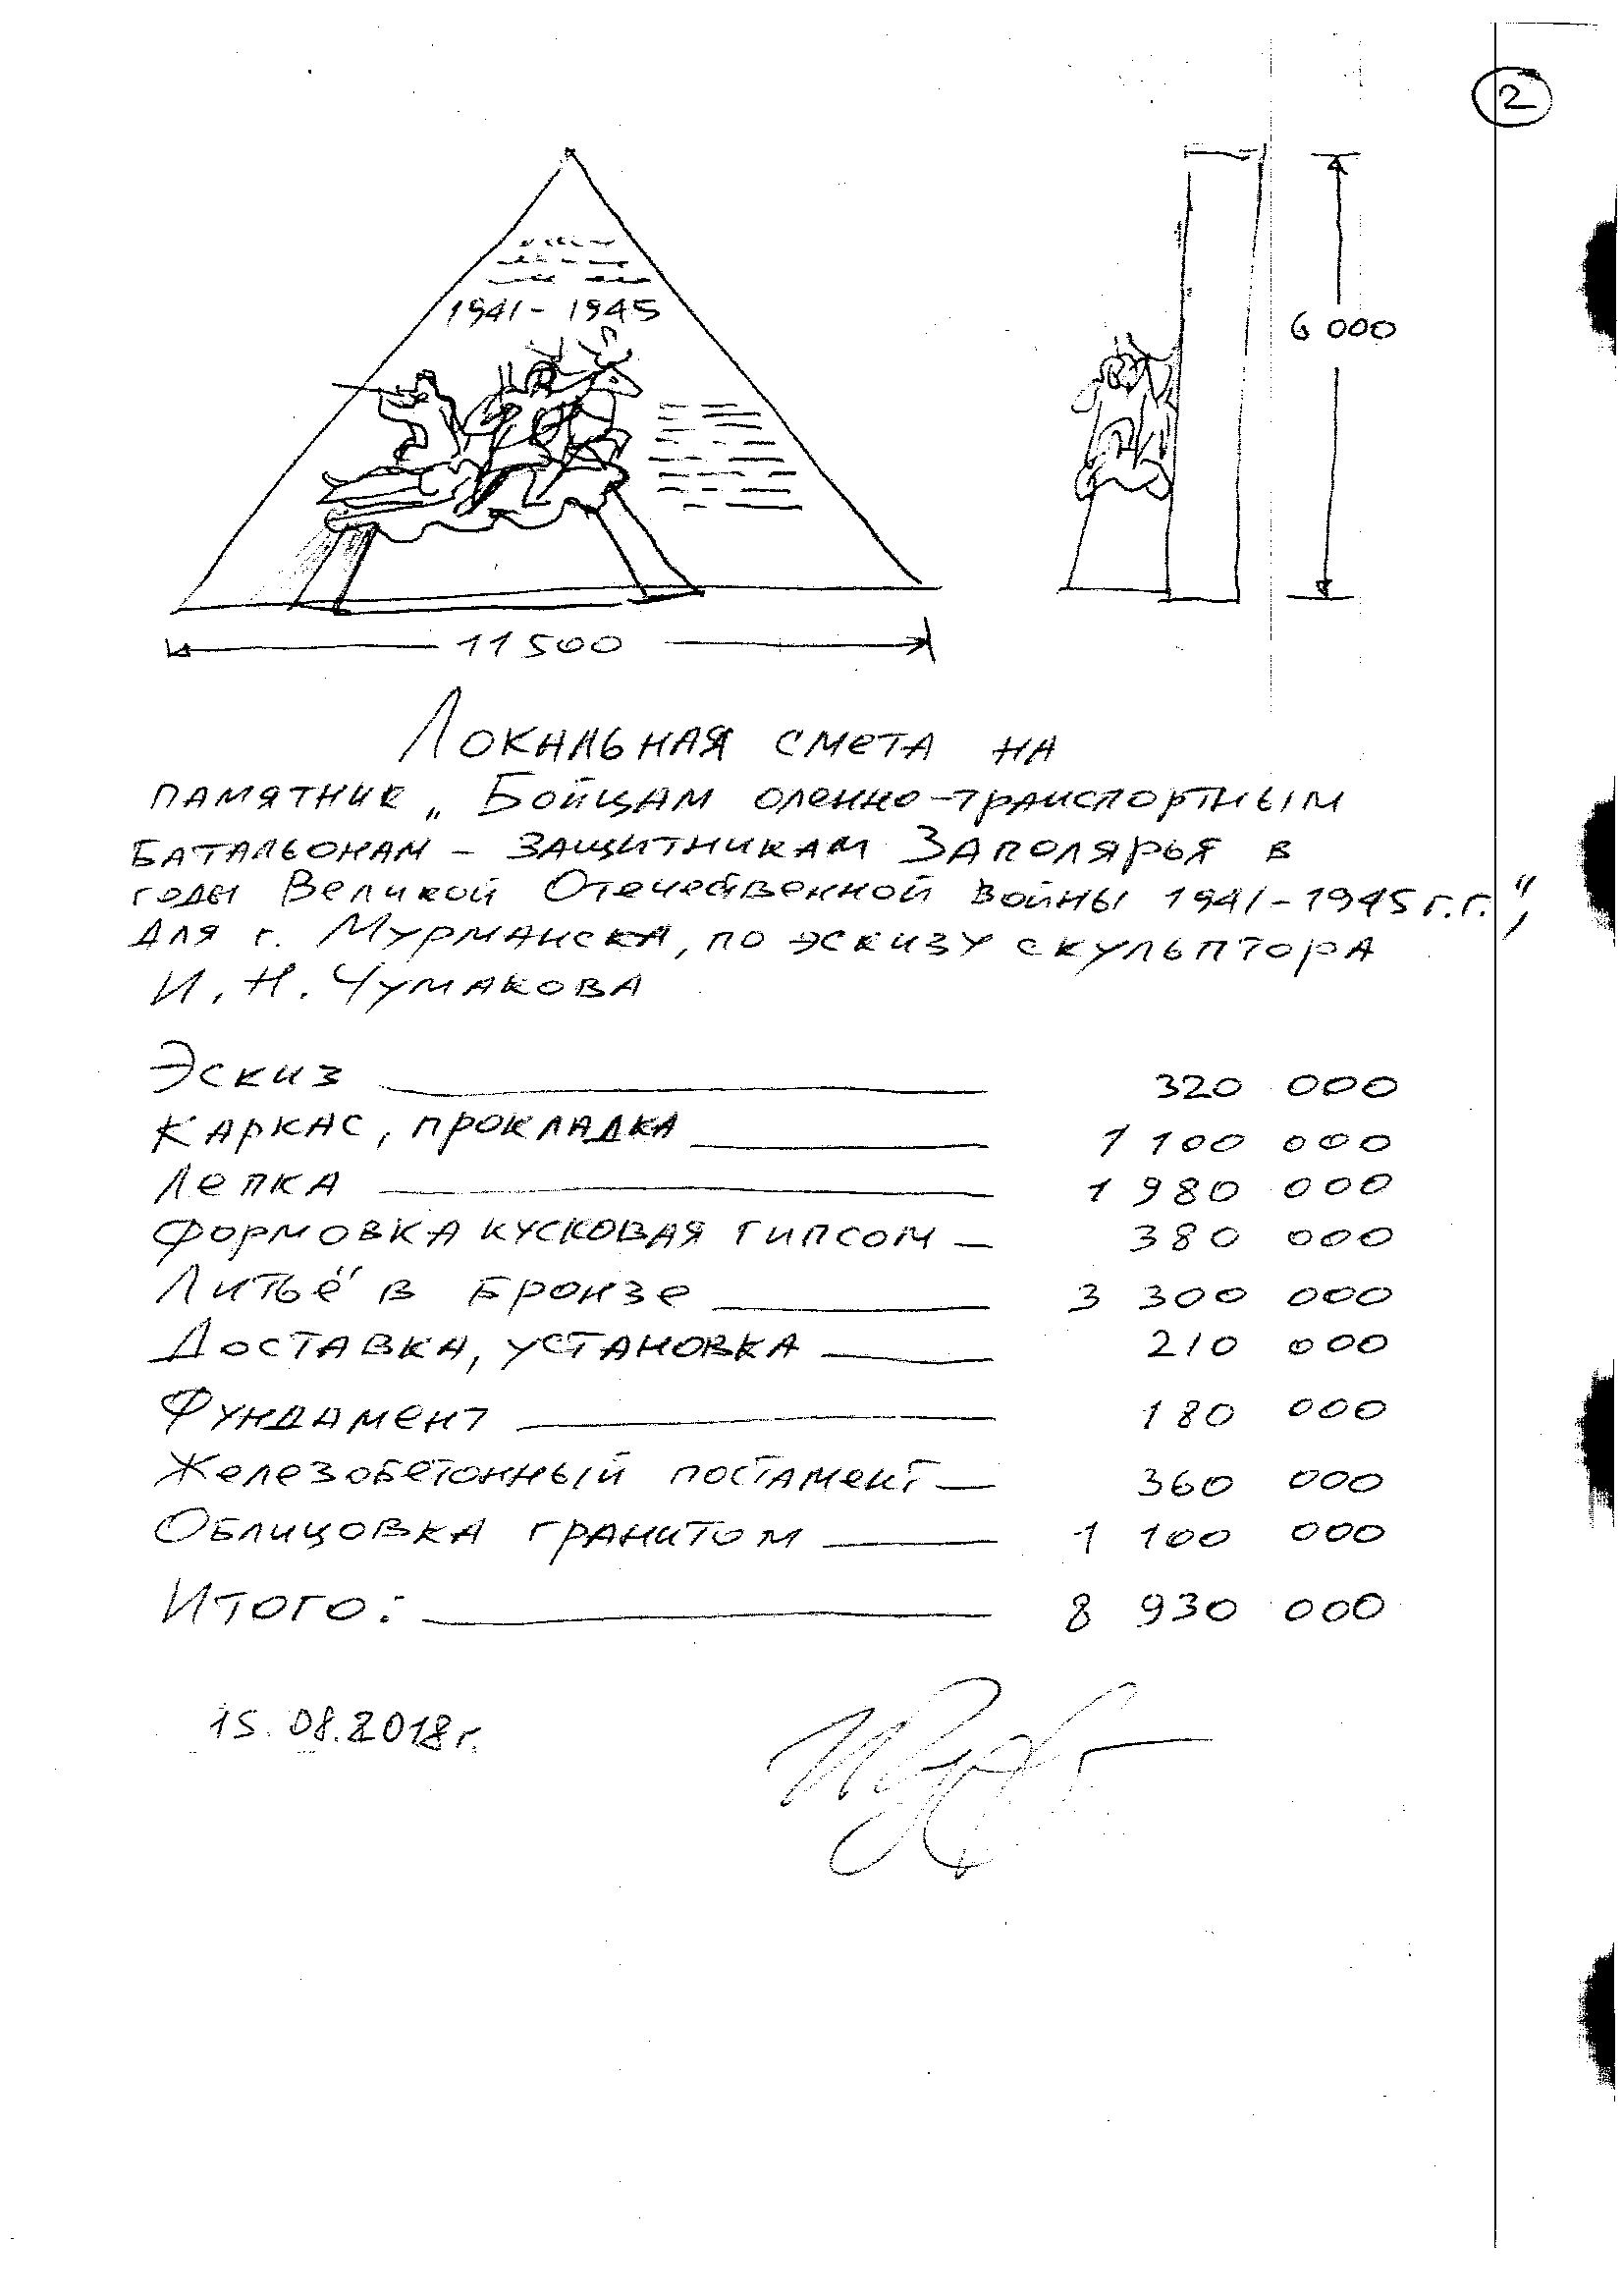 2
1941-1945
6 000
11 500
Локальная смета на
памятник „Бойцам оленно-транспортным
батальонам - защитникам Заполярья в
годы Великой Отечественной войны 1941-1945 г.г.",
для г. Мурманска, по эскизу скульптора
И.Н. Чумакова
Эскиз 320 000
Каркас, прокладка 1 100 000
Лепка 1 980 000
Формовка кусковая гипсом 380 000
Литьё в бронзе 3 300 000
Доставка, установка 210 000
Фундамент 180 000
Железобетонный постамент 360 000
Облицовка гранитом 1 100 000
Итого: 8 930 000
15.08.2018г.